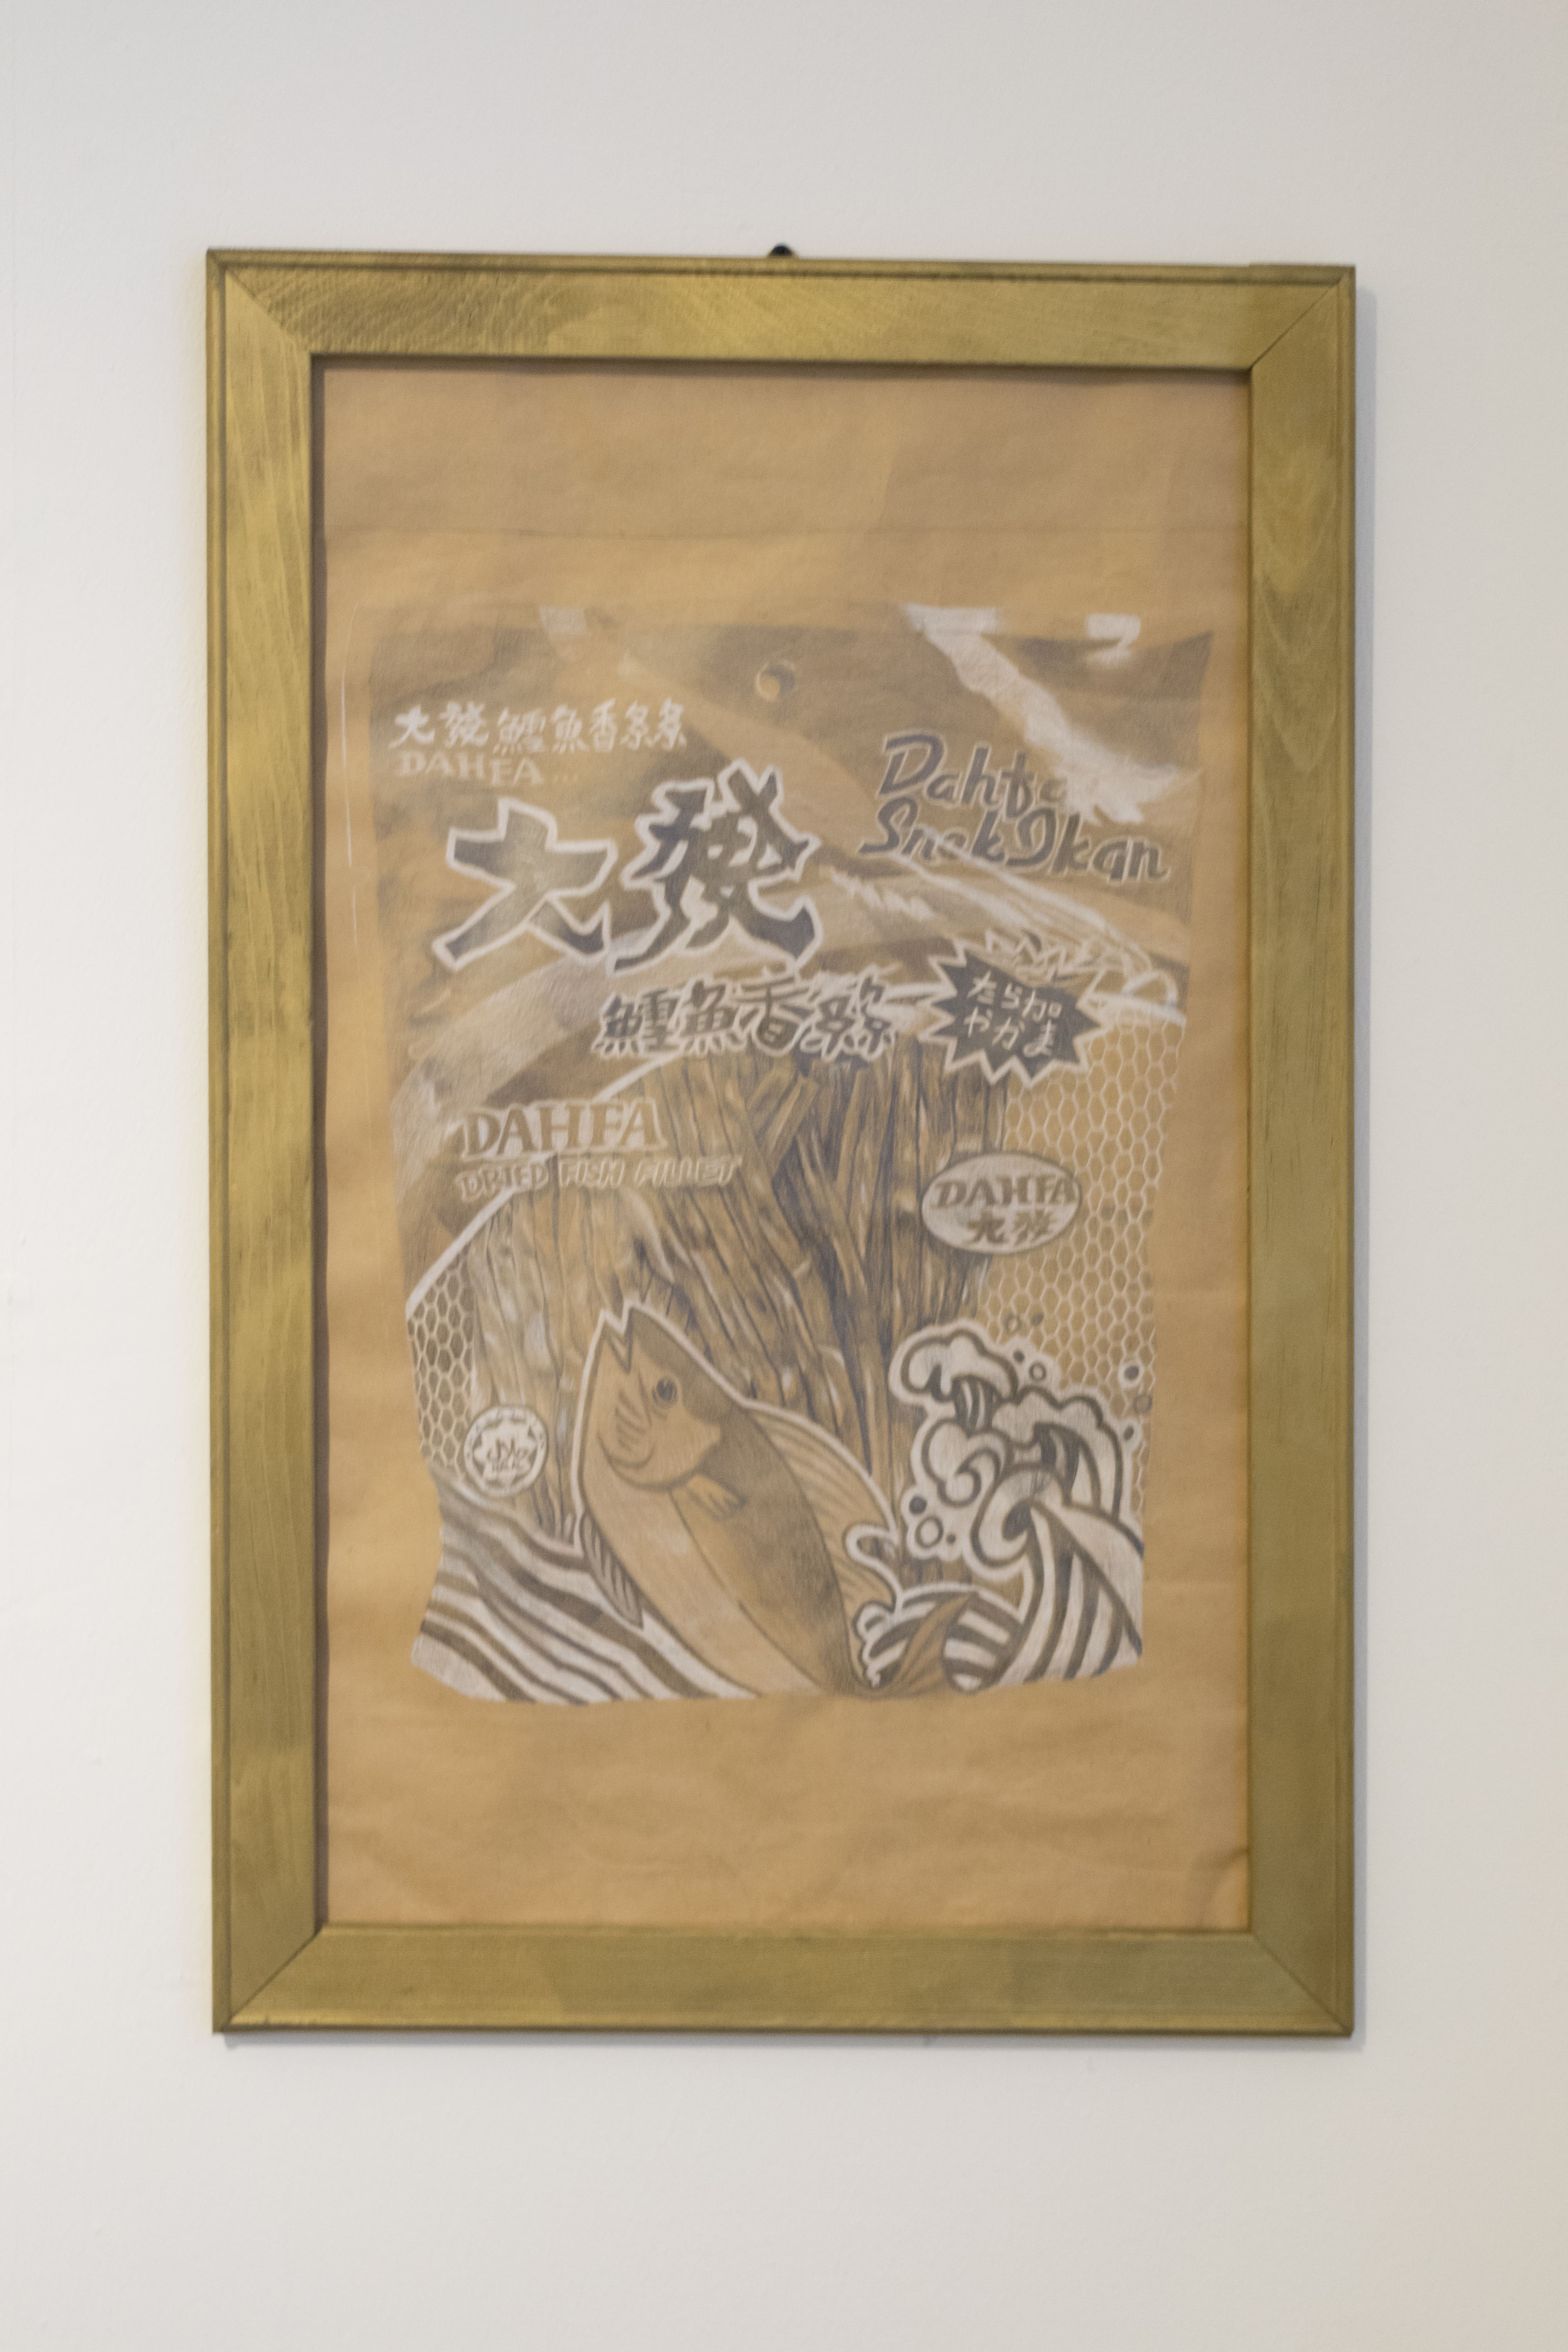 大發鱈魚香絲
DAHFA...
Dahfa
Snek Ikan
大發
鱈魚香絲
たら加
やかま
DAHFA
DRIED FISH FILLET
DAHFA
大發